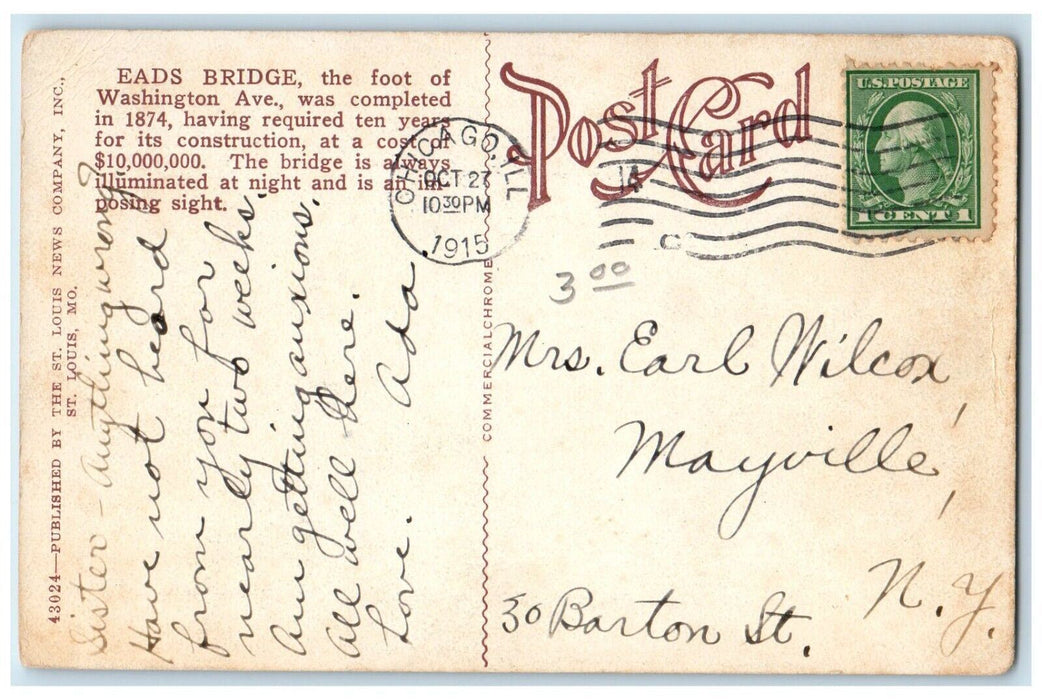 EADS BRIDGE, the foot of
Washington Ave., was completed
in 1874, having required ten years
for its construction, at a cost of
$10,000,000. The bridge is always
illuminated at night and is an im-
posing sight.
43024—PUBLISHED BY THE ST. LOUIS NEWS COMPANY, INC.,
ST. LOUIS, MO.
Sister - Anything wrong?
Have not heard
from you for
nearly two weeks.
Am getting anxious.
All well here.
Love. Ada.
COMMERCIALCHROME
Post Card
CHICAGO, ILL
OCT 27
10 30 PM
1915
14
U.S. POSTAGE
1 CENT 1
3 00
Mrs. Earl Wilcox,
Mayville,
N. Y.
30 Barton St.